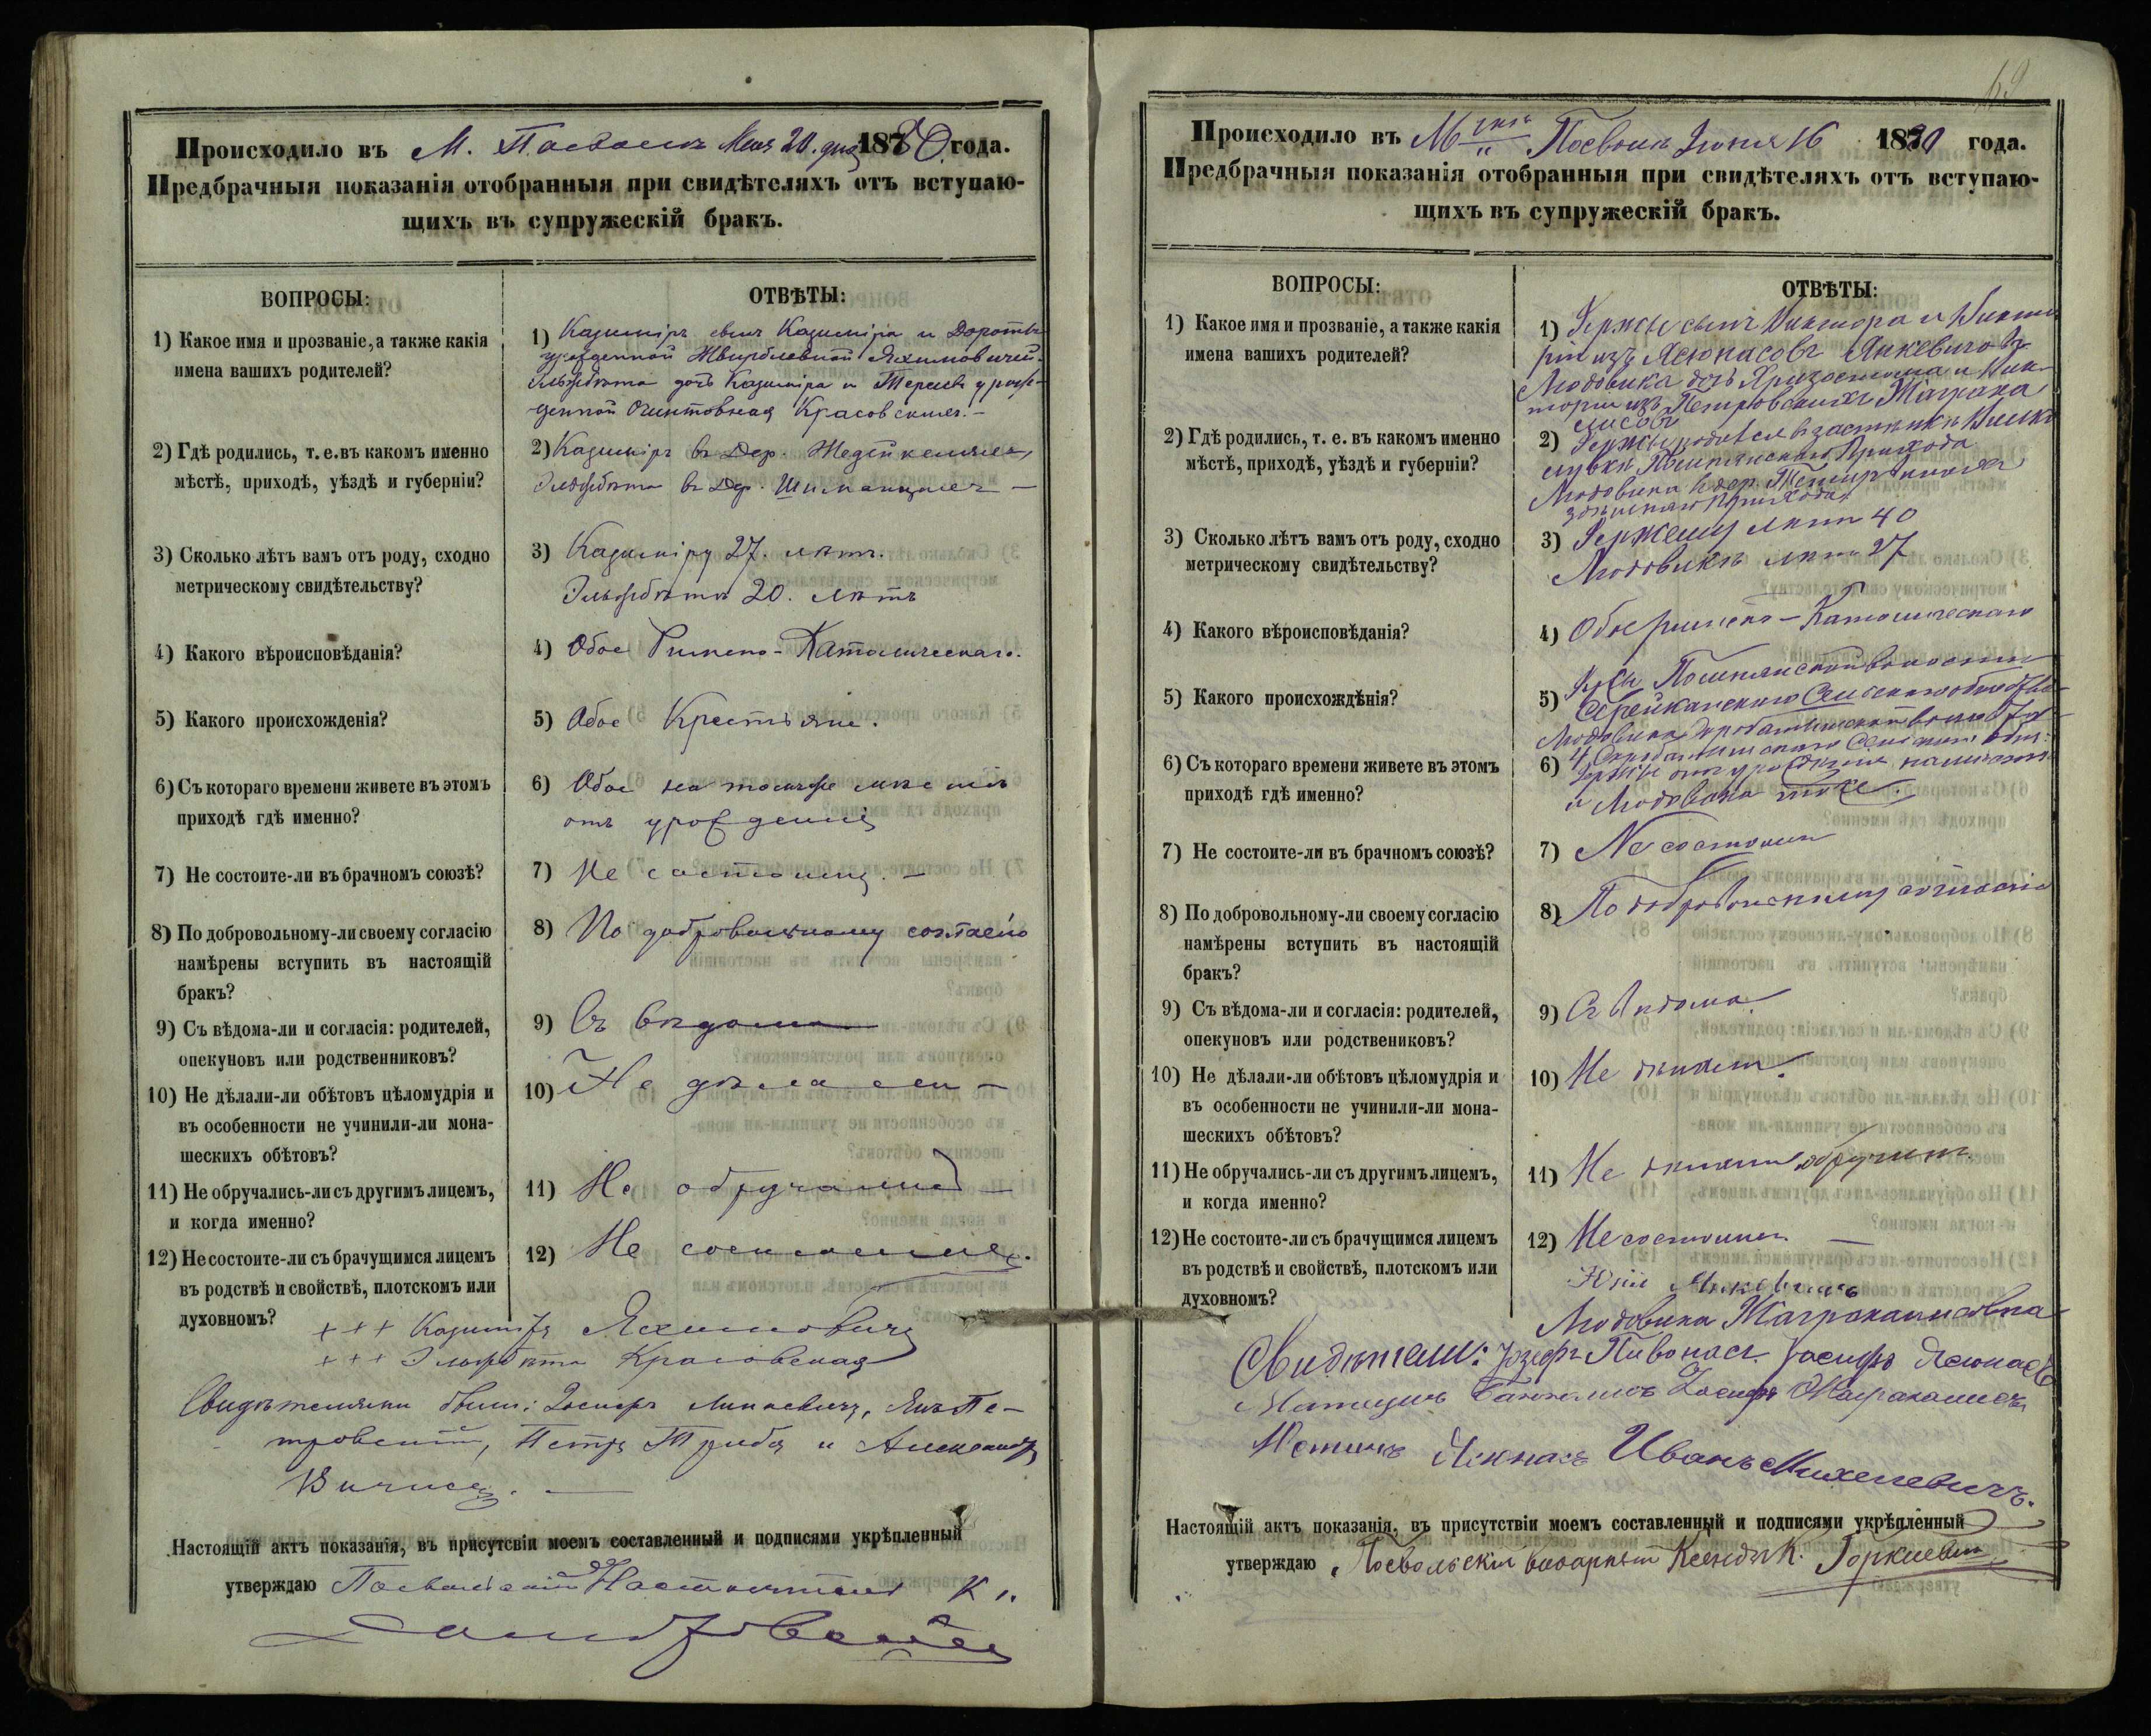 Происходило въ М. Посволь Мая 20. дня 1880 года.
Предбрачныя показанія отобранныя при свидѣтеляхъ отъ вступаю-
щихъ въ супружескій бракъ.
ВОПРОСЫ:
ОТВѢТЫ:
1) Какое имя и прозваніе, а также какія
имена вашихъ родителей?
1) Казиміръ сынъ Казиміра и Дороты
урожденной Яхимовичей.
Эльжбета дочь Казиміра и Терезы урож-
денной Красовскихъ. -
2) Гдѣ родились, т. е. въ какомъ именно
мѣстѣ, приходѣ, уѣздѣ и губерніи?
2) Казиміръ въ Дер.
Эльжбета въ Дер. -
3) Сколько лѣтъ вамъ отъ роду, сходно
метрическому свидѣтельству?
3) Казиміру 27. лѣтъ.
Эльжбетѣ 20. лѣтъ
4) Какого вѣроисповѣданія?
4) Обое Римско-Католическаго.
5) Какого происхожденія?
5) Обое Крестьяне.
6) Съ котораго времени живете въ этомъ
приходѣ гдѣ именно?
6) Обое на томже мѣстѣ
отъ урожденія
7) Не состоите-ли въ брачномъ союзѣ?
7) Не состоимъ. -
8) По добровольному-ли своему согласію
намѣрены вступить въ настоящій
бракъ?
8) По добровольному согласію
9) Съ вѣдома-ли и согласія: родителей,
опекуновъ или родственниковъ?
9) Съ вѣдома
10) Не дѣлали-ли обѣтовъ цѣломудрія и
въ особенности не учинили-ли мона-
шескихъ обѣтовъ?
10) Не дѣлали -
11) Не обручались-ли съ другимъ лицемъ,
и когда именно?
11) Не обручались
12) Не состоите-ли съ брачущимся лицемъ
въ родствѣ и свойствѣ, плотскомъ или
духовномъ?
12) Не состоимъ.
+++ Казиміръ Яхимовичъ
+++ Эльжбета Красовская
Свидѣтелями были: Іосифъ, Янъ Пе-
тровскій, Петръ и Александръ
Настоящій актъ показанія, въ присутсвіи моемъ составленный и подписями укрѣпленный
утверждаю Посвольскій Настоятель К.
Происходило въ Мѣстѣ Посволь Іюня 16 1880 года.
Предбрачныя показанія отобранныя при свидѣтеляхъ отъ вступаю-
щихъ въ супружескій бракъ.
ВОПРОСЫ:
ОТВѢТЫ:
1) Какое имя и прозваніе, а также какія
имена вашихъ родителей?
1) Ержы сынъ Виктора и Викто
ріи изъ Ясюнасовъ Янкевичовъ
Людовика дочь Хризостома и Вик-
торіи изъ Петровскихъ
2) Гдѣ родились, т. е. въ какомъ именно
мѣстѣ, приходѣ, уѣздѣ и губерніи?
2) Ержы родился въ застѣнкѣ
прихода
Людовика въ дер.
прихода
3) Сколько лѣтъ вамъ отъ роду, сходно
метрическому свидѣтельству?
3) Ержему лѣтъ 40
Людовикѣ лѣтъ 27
4) Какого вѣроисповѣданія?
4) Обое римско-Католическаго
5) Какого происхождѣнія?
5) Ержы волости
Сельскаго общества
Людовика
6) Съ котораго времени живете въ этомъ
приходѣ гдѣ именно?
6) Ержы отъ урожденія
и Людовика тоже.
7) Не состоите-ли въ брачномъ союзѣ?
7) Не состоимъ
8) По добровольному-ли своему согласію
намѣрены вступить въ настоящій
бракъ?
8) По добровольному согласію
9) Съ вѣдома-ли и согласія: родителей,
опекуновъ или родствениковъ?
9) Съ вѣдома.
10) Не дѣлали-ли обѣтовъ цѣломудрія и
въ особенности не учинили-ли мона-
шескихъ обѣтовъ?
10) Не дѣлали.
11) Не обручались-ли съ другимъ лицемъ,
и когда именно?
11) Не
12) Не состоите-ли съ брачущимся лицемъ
въ родствѣ и свойствѣ, плотскомъ или
духовномъ?
12) Не состоимъ. -
Юрій Янкевичъ
Людовика
Свидѣтели: Іозефъ Пивонасъ. Іосифъ Ясюнасъ
Іосифъ
Юстинъ Яснасъ Иванъ Михневичъ.
Настоящій актъ показанія, въ присутствіи моемъ составленный и подписями укрѣпленный
утверждаю Посвольскій викарный Ксендзъ К. Горкевичъ